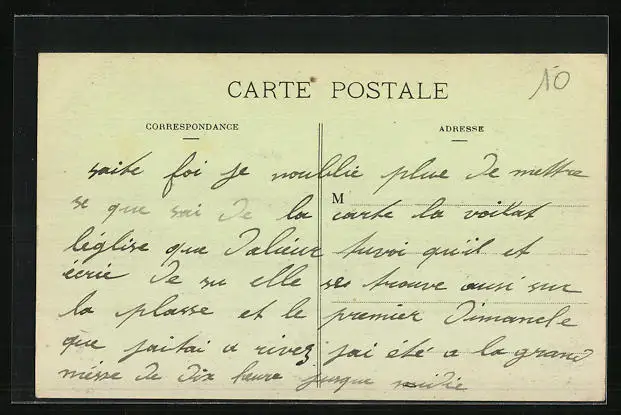 10
CARTE POSTALE
CORRESPONDANCE
ADRESSE
saite foi je noublie plue de mettre
M
se que sai de la carte la voilat
léglise que dalieur tuvoi qu'il et
écrie de su elle se trouve ausi sur
la plasse et le premier Dimanche
que jaitai a rivez jai été a la grand
messe de dix heure jusque midie